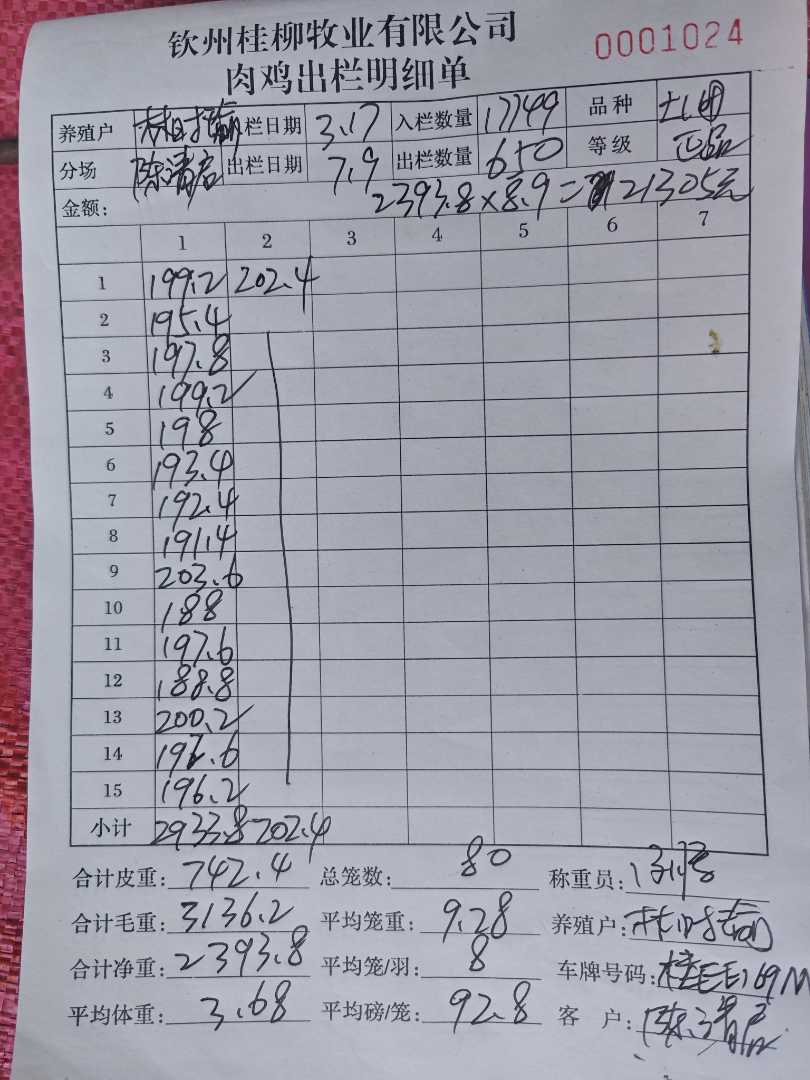 钦州桂柳牧业有限公司
0001024
肉鸡出栏明细单
养殖户 入栏日期 3.17 入栏数量 17749 品种 土2
分场 陈清启 出栏日期 7.9 出栏数量 650 等级 正品
金额: 2393.8×8.9=21305元
1 2 3 4 5 6 7
1 199.2 202.4
2 195.4
3 197.8
4 199.2
5 198
6 193.4
7 192.4
8 191.4
9 203.6
10 188
11 197.6
12 188.8
13 200.2
14 192.6
15 196.2
小计 2933.8 202.4
合计皮重: 742.4 总笼数: 80 称重员:
合计毛重: 3136.2 平均笼重: 9.28 养殖户:
合计净重: 2393.8 平均笼/羽: 8 车牌号码:
平均体重: 3.68 平均磅/笼: 92.8 客户: 陈清启